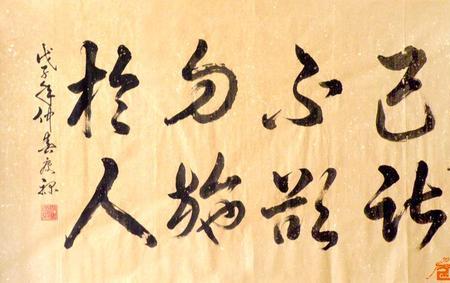 己所
不欲
勿施
於人
戊子年仲春